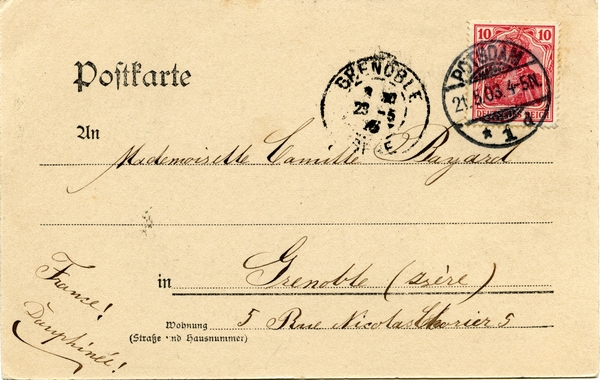 10 10
DEUTSCHES REICH
POTSDAM
21.5.03. 4-5N.
* 1 a
GRENOBLE
23 -5
03
ISERE
Postkarte
An
Mademoiselle Camille Bayard
in Grenoble (Isère)
Wohnung 5 Rue Nicolas Chorier 5
(Straße und Hausnummer)
France!
Dauphiné!